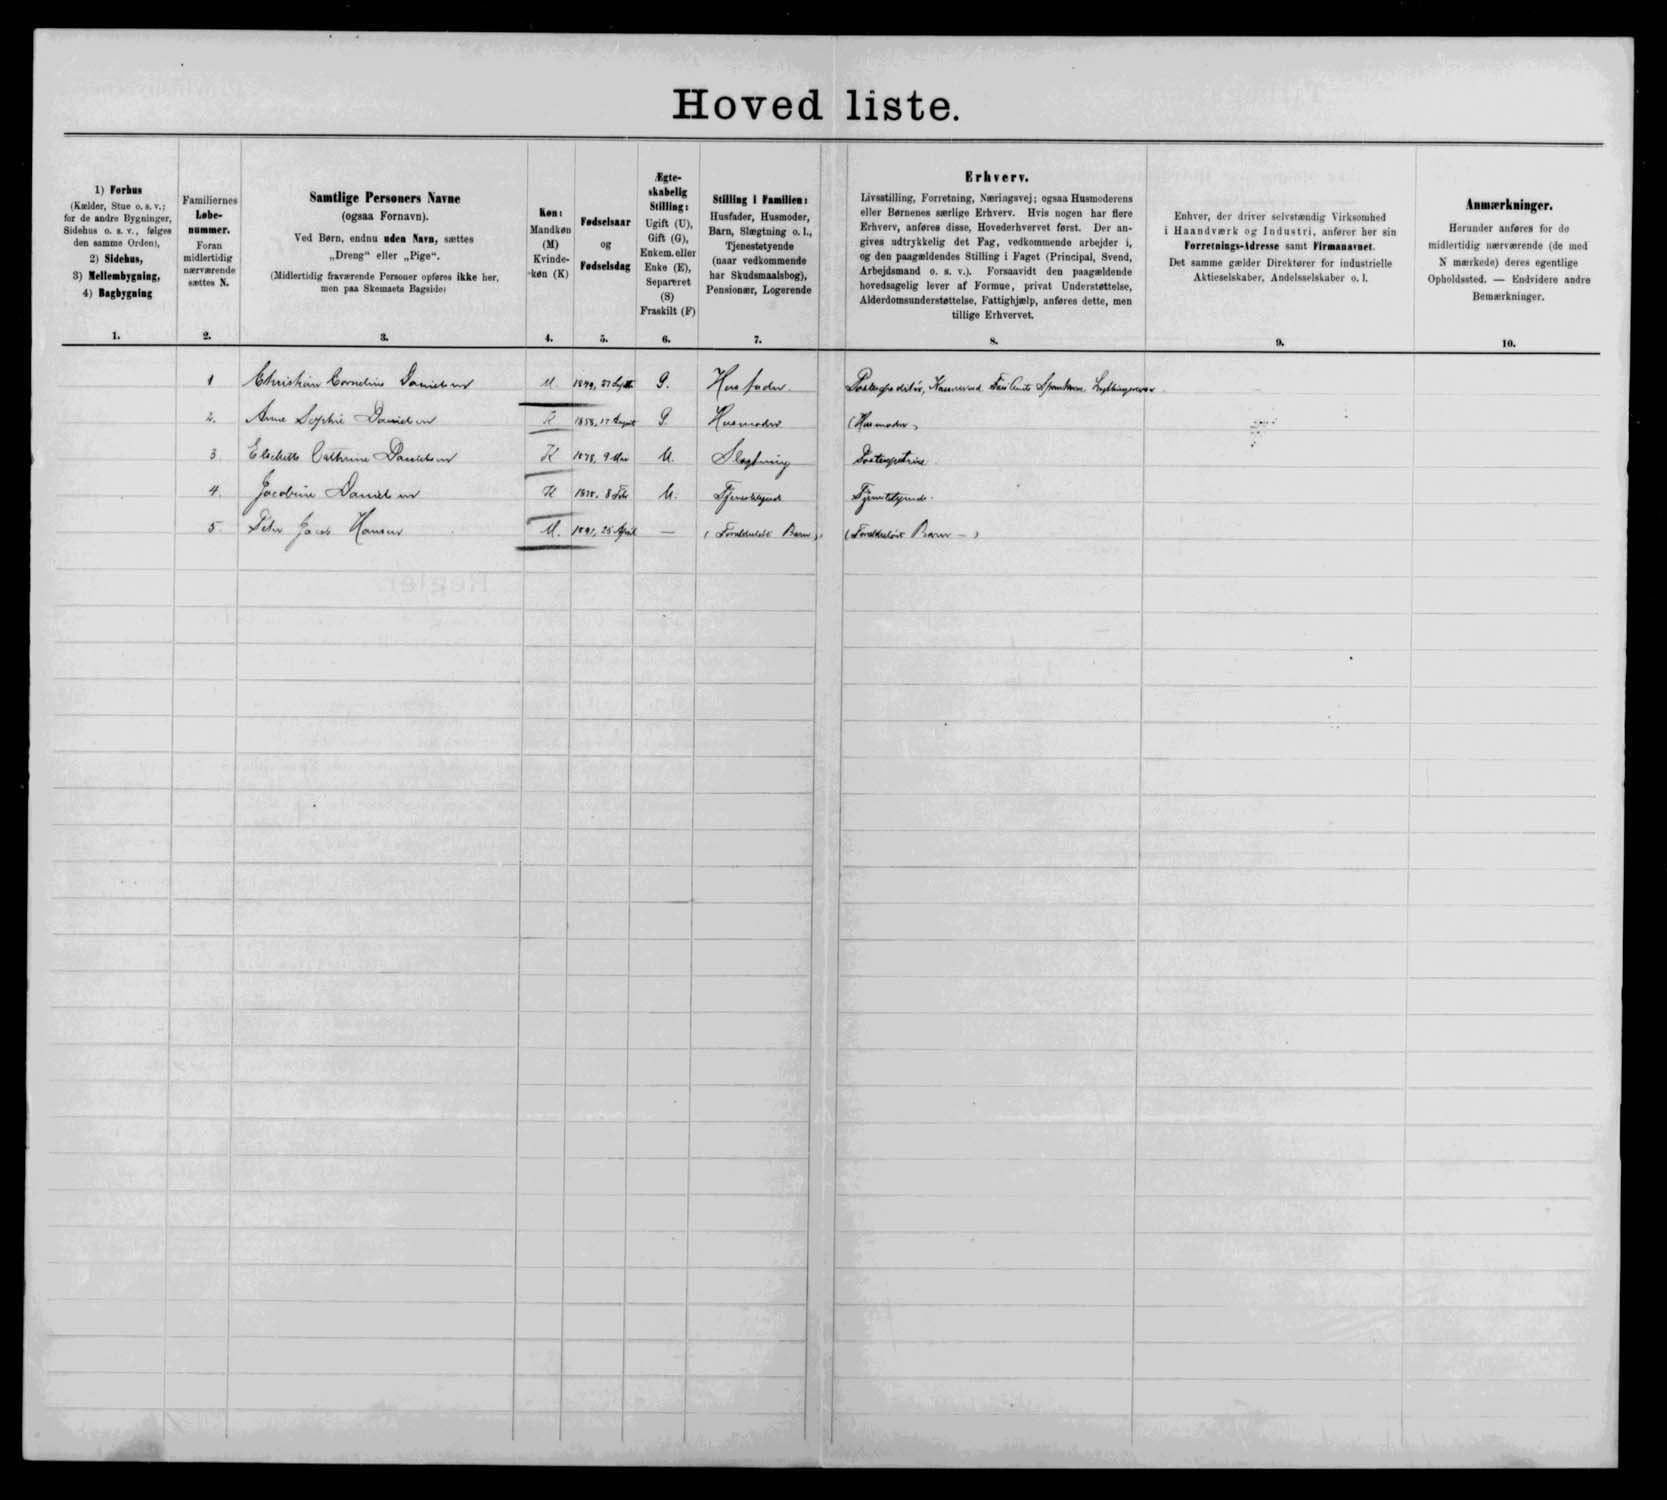 Hovedliste.
1) Forhus
(Kælder, Stue o. s. v.;
for de andre Bygninger,
Sidehus o. s. v., følges
den samme Orden),
2) Sidehus,
3) Mellembygning,
4) Bagbygning
1.
Familiernes
Løbe-
nummer.
Foran
midlertidig
nærværende
sættes N.
2.
Samtlige Personers Navne
(ogsaa Fornavn).
Ved Børn, endnu uden Navn, sættes
„Dreng" eller „Pige".
(Midlertidig fraværende Personer opføres ikke her,
men paa Skemaets Bagside)
3.
Køn:
Mandkøn
(M)
Kvinde-
køn (K)
4.
Fødselsaar
og
Fødselsdag
5.
Ægte-
skabelig
Stilling:
Ugift (U),
Gift (G),
Enkem. eller
Enke (E),
Separeret
(S)
Fraskilt (F)
6.
Stilling i Familien:
Husfader, Husmoder,
Barn, Slægtning o. l.,
Tjenestetyende
(naar vedkommende
har Skudsmaalsbog),
Pensionær, Logerende
7.
Erhverv.
Livsstilling, Forretning, Næringsvej; ogsaa Husmoderens
eller Børnenes særlige Erhverv. Hvis nogen har flere
Erhverv, anføres disse, Hovederhvervet først. Der an-
gives udtrykkelig det Fag, vedkommende arbejder i,
og den paagældendes Stilling i Faget (Principal, Svend,
Arbejdsmand o. s. v.). Forsaavidt den paagældende
hovedsagelig lever af Formue, privat Understøttelse,
Alderdomsunderstøttelse, Fattighjælp, anføres dette, men
tillige Erhvervet.
8.
Enhver, der driver selvstændig Virksomhed
i Haandværk og Industri, anfører her sin
Forretnings-Adresse samt Firmanavnet.
Det samme gælder Direktører for industrielle
Aktieselskaber, Andelsselskaber o. l.
9.
Anmærkninger.
Herunder anføres for de
midlertidig nærværende (de med
N mærkede) deres egentlige
Opholdssted. — Endvidere andre
Bemærkninger.
10.
1 Christian Cornelius Danielsen M. G. Husfader.
2. Anne Sophie Danielsen K 17 August G. Husmoder (Husmoder)
3. Catherine Danielsen K 1878, U. Slægtning
4. Jacobine Danielsen K U. Tjenestetyende Tjenestetyende.
5. Peter Jacob Hansen M. 1891, 25 April — (Forældreløst Barn) (Forældreløst Barn —)